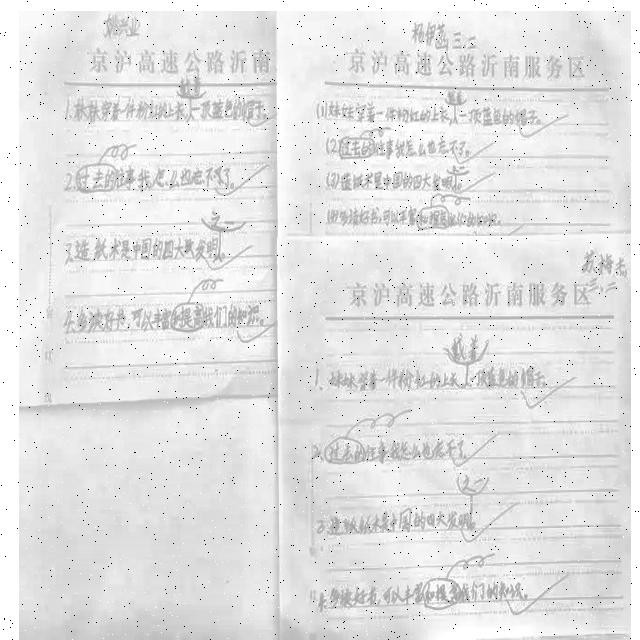 京沪高速公路沂南
1.妹妹穿着一件粉红的上衣,一顶蓝色的帽子。
戴着
2.过去的往事我怎么也忘不了。
3.造纸术是中国的四大发明。
之一
4.多读好书,可以丰富和提高我们的知识。
三.二
京沪高速公路沂南服务区
戴着
(1)妹妹穿着一件粉红的上衣,一顶蓝色的帽子。
(2)过去的往事我怎么也忘不了。
(3)造纸术是中国的四大发明。
之一
(4)多读好书,可以丰富和提高我们的知识。
三.二
京沪高速公路沂南服务区
戴着
1.妹妹穿着一件粉红的上衣,一顶蓝色的帽子。
2.过去的往事我怎么也忘不了。
之一
3.造纸术是中国的四大发明。
4.多读好书,可以丰富和提高我们的知识。